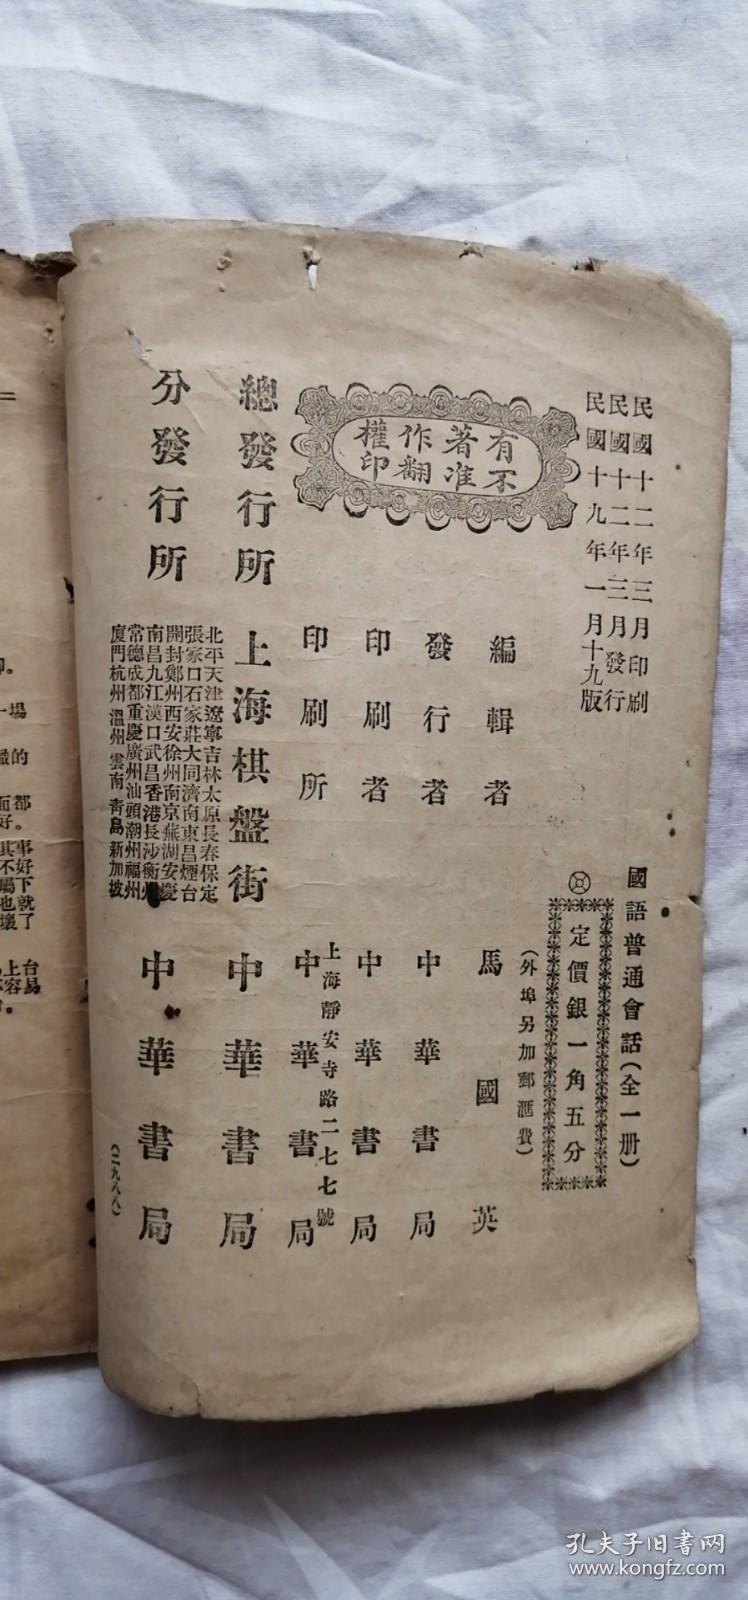 民國十二年三月印刷
民國十二年三月發行
民國十九年一月十九版
國語普通會話(全一册)
定價銀一角五分
(外埠另加郵滙費)
有著作權
不准翻印
編輯者 馬國英
發行者 中華書局
印刷者 中華書局
上海靜安寺路二七七號
印刷所 中華書局
總發行所 上海棋盤街 中華書局
分發行所 中華書局
北平天津遼寧吉林太原長春保定
張家口石家莊大同濟南東昌煙台
開封鄭州西安徐州南京蕪湖安慶
南昌九江漢口武昌香港長沙衡州
常德成都重慶廣州汕頭潮州福州
廈門杭州溫州雲南青島新加坡
(二九八八)
場
的
面都
好。
其事
不好
屬下
也就
壞了
上台
容易
孔夫子旧书网
www.kongfz.com